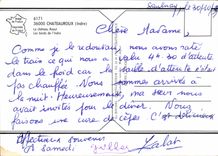 6171
36000 CHATEAUROUX (Indre)
Le château Raoul
Les bords de l'Indre
Chère Madame,
Comme je le redoutais, nous avons raté
le train ce qui nous a valu 4h30 d'attente
dans le froid car la salle d'attente n'était
pas chauffée. Nous sommes arrivés à
la nuit. Heureusement, ma sœur nous
avait invités pour le dîner. Nous
faisons une cure de cèpes. C'est délicieux.
Affectueux souvenirs
à samedi